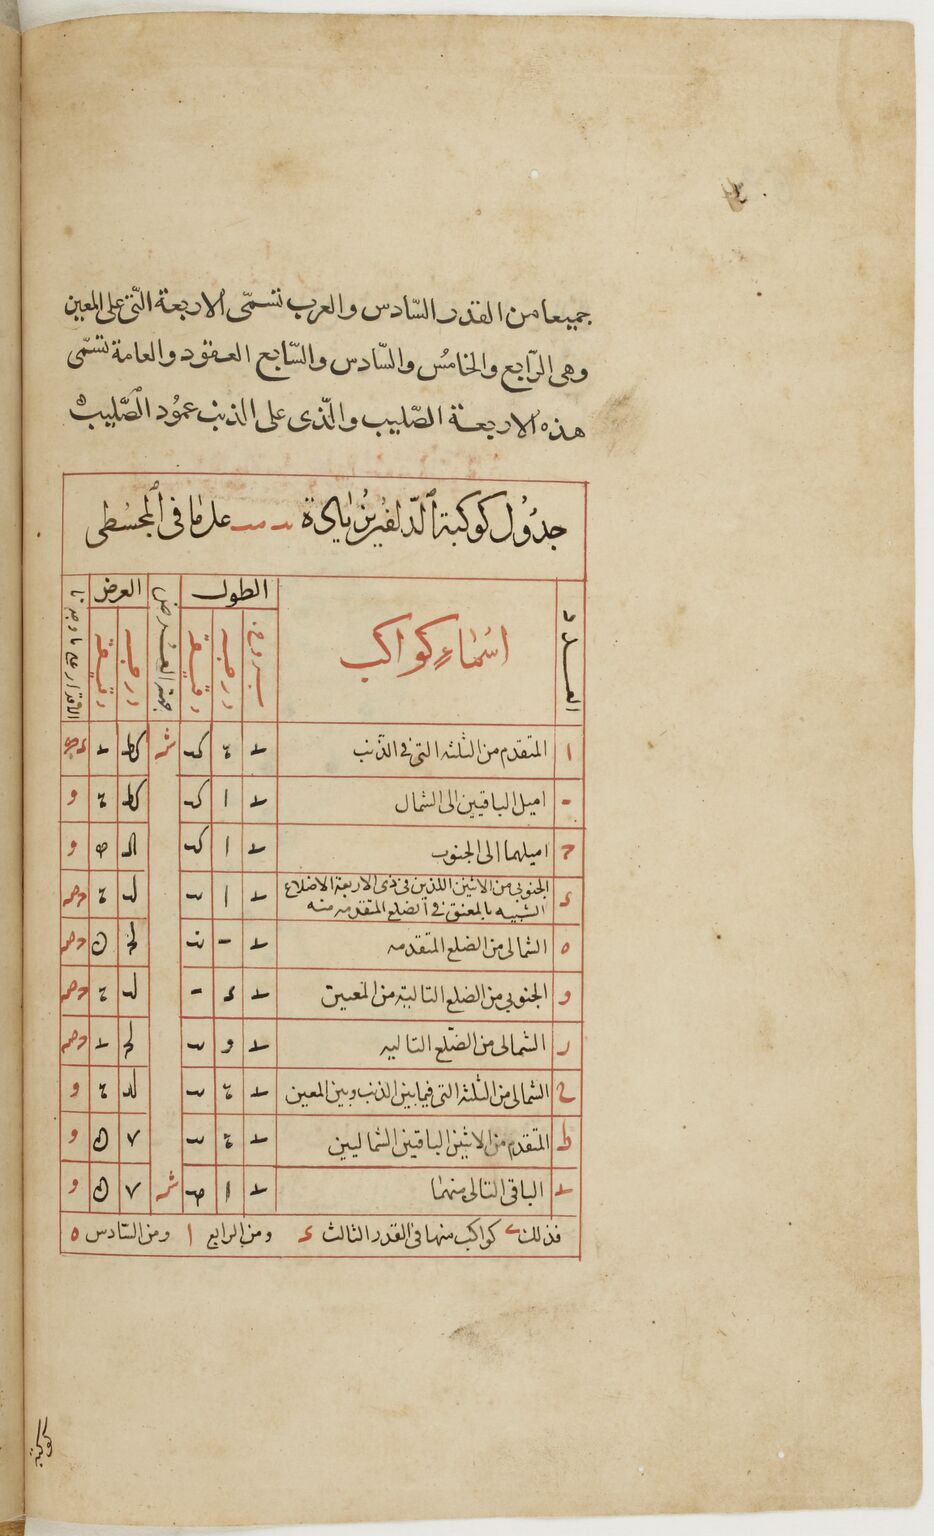 جميعا من القدر السّادس والعرب تسمّى الاربعة الّتى على المعين
وهى الرّابع والخامس والسّادس والسّابع العقود والعامة تسمّى
هذه الاربعة الصّليب والّذى على الذنب عمود الصّليب
جدول كوكبة الدّلفين بزيادة على ما فى المجسطى
العدد اسماء كواكب الطول جهة العرض العرض الاقدار على ما وجدنا
بروج درجه دقيقة درجه دقيقة
ا المتقدم من الثلثه التى فى الذنب ى ح كد شم كط ى
ب اميل الباقيين الى الشمال ى ا كد كط ح و
ح اميلهما الى الجنوب ى ا كد و
د الجنوبى من الاثنين اللذين فى ذى الاربعة الاضلاع
الشبيه بالمعين فى الضلع المتقدمه منه ى ا لب ح
ه الشمالى من الضلع المتقدمه ى ب لح ن
و الجنوبى من الضلع التاليه من المعين ى د لب ح
ر الشمالى من الضّلع التاليه ى و لح ى
ح الشمالى من الثلثه التى فيما بين الذنب وبين المعين ى ح لد ح و
ط المتقدم من الاثنين الباقيين الشماليين ى ح و
ى الباقى التالى منهما ى ا شم و
فذلك ى كواكب منها فى القدر الثالث د ومن الرابع ا ومن السّادس ه
كوكبة